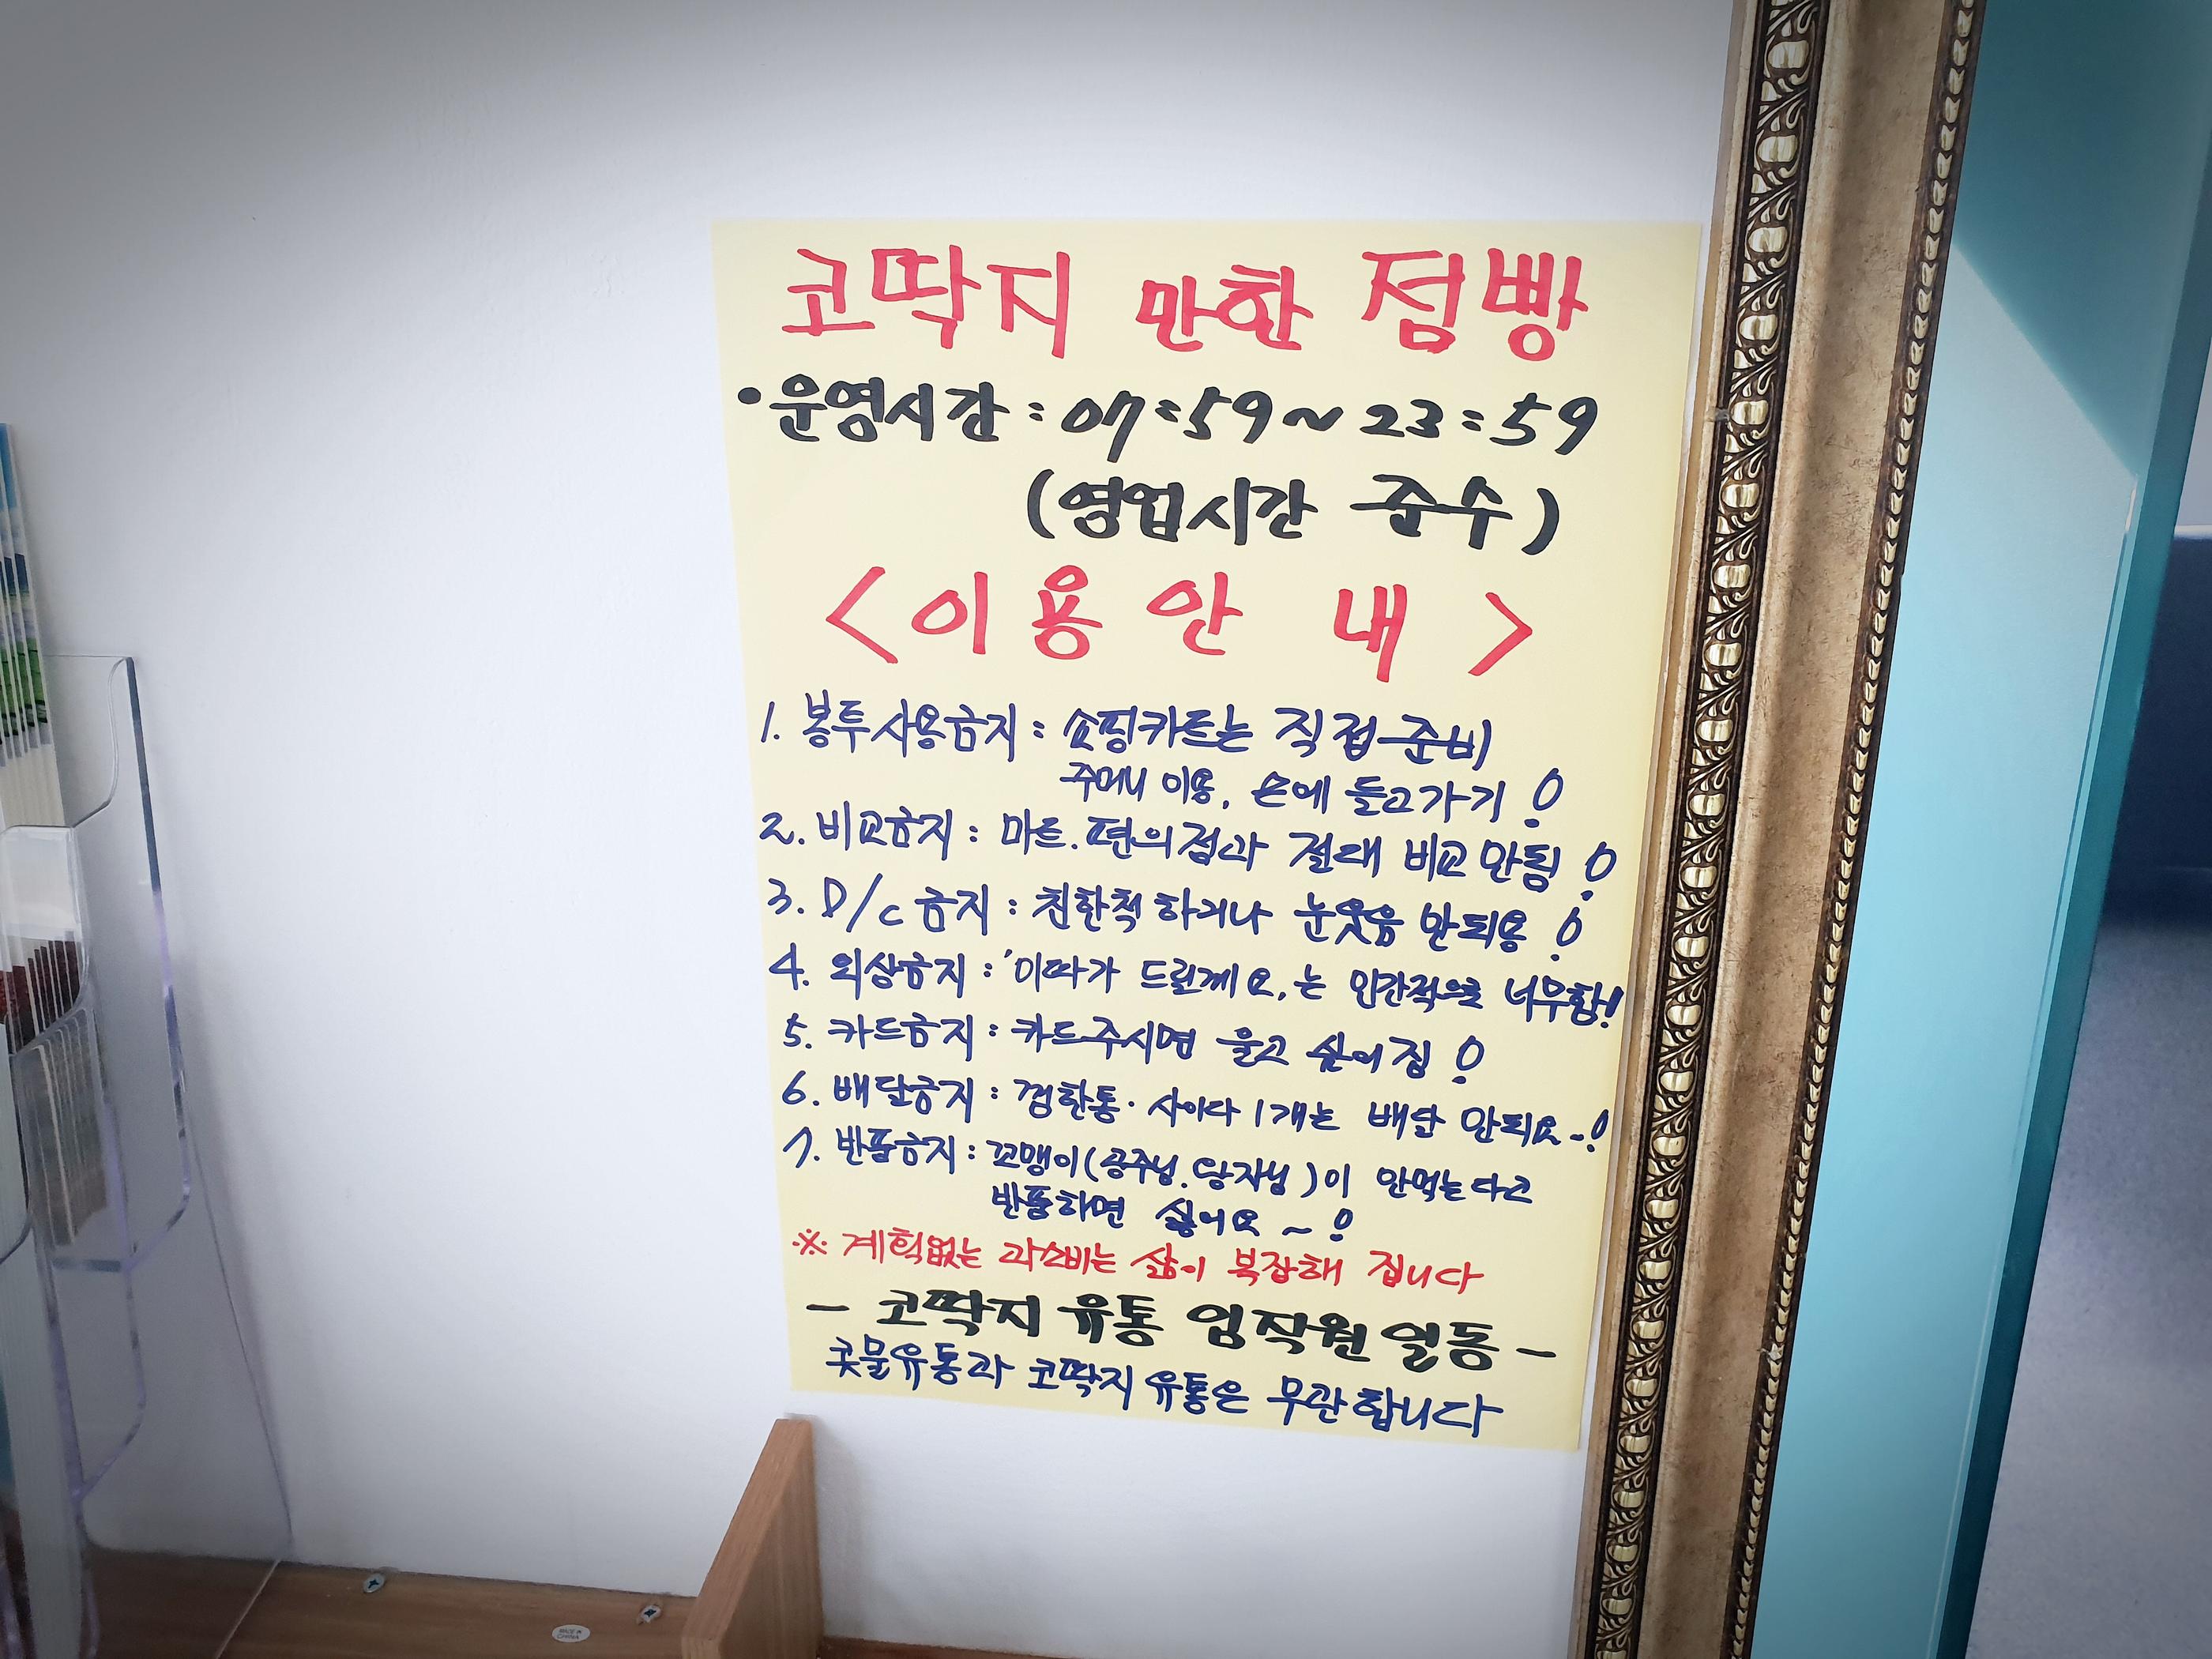 코딱지 만한 점빵
•운영시간 : 07:59~23:59
(영업시간 준수)
<이용안내>
1. 봉투사용금지 : 쇼핑카트는 직접 준비
주머니 이용, 손에 들고가기!
2. 비교금지 : 마트.편의점과 절대 비교 안됨!
3. D/c 금지 : 친한척 하거나 눈웃음 안되용!
4. 외상금지 : '이따가 드릴께요,는 인간적으로 너무함!
5. 카드금지 : 카드주시면 울고 싶어짐!
6. 배달금지 : 껌한통· 사이다 1개는 배달 안되요~!
7. 반품금지 : 꼬맹이(공주님.왕자님)이 안먹는다고
반품하면 싫어요~!
※ 계획없는 과소비는 삶이 복잡해 집니다
- 코딱지 유통 임직원 일동 -
콧물유통과 코딱지 유통은 무관합니다
MADE IN
CHINA